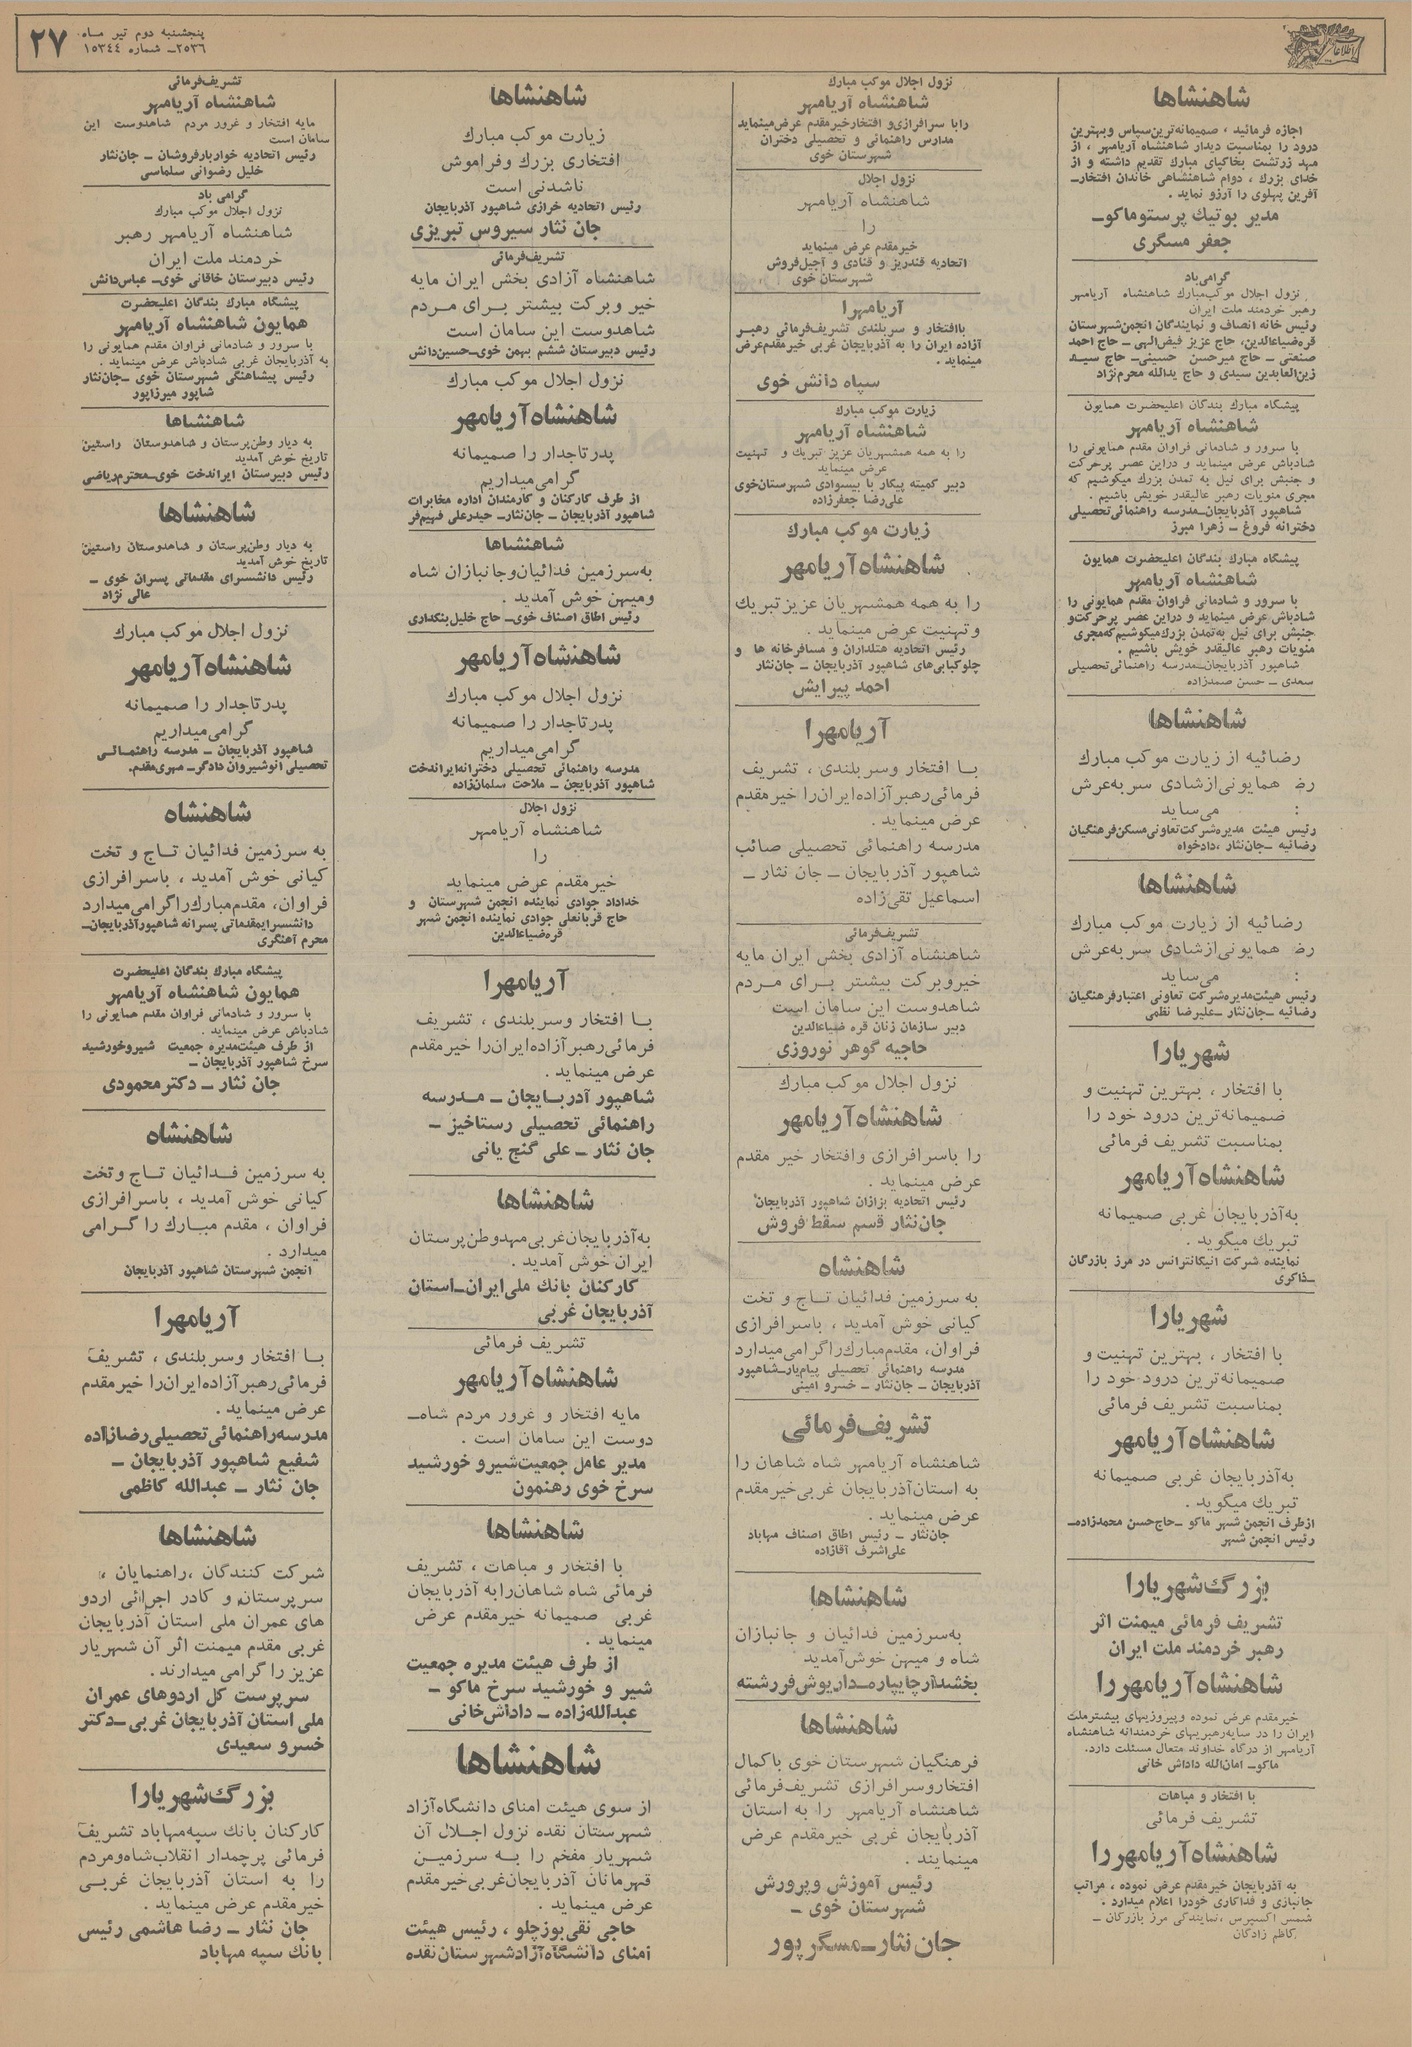 اطلاعات
پنجشنبه دوم تیر ماه
۲۵۳۶ـ شماره ۱۵۳۴۴
۲۷
شاهنشاها
اجازه فرمائید ، صمیمانه‌ترین‌سپاس وبهترین
درود را بمناسبت دیدار شاهنشاه آریامهر ، از
مهد زرتشت بخاکپای مبارك تقدیم داشته و از
خدای بزرك ، دوام شاهنشاهی خاندان افتخارـ
آفرین پهلوی را آرزو نماید .
مدیر بوتیك پرستوماکوـ
جعفر مسگری
گرامی‌باد
نزول اجلال موکب‌مبارك شاهنشاه آریامهر
رهبر خردمند ملت ایران
رئیس خانه انصاف و نمایندگان انجمن‌شهرستان
قره‌ضیاءالدین، حاج عزیز فیض‌الهی ـ حاج احمد
صنعتی ـ حاج میرحسن حسینی‌ـ حاج سید
زین‌العابدین سیدی و حاج یدالله محرم‌نژاد
پیشگاه مبارك بندگان اعلیحضرت همایون
شاهنشاه آریامهر
با سرور و شادمانی فراوان مقدم همایونی را
شادباش عرض مینماید و دراین عصر پرحرکت
و جنبش برای نیل به تمدن بزرك میکوشیم که
مجری منویات رهبر عالیقدر خویش باشیم .
شاهپور آذربایجان‌ـمدرسه راهنمائی‌تحصیلی
دخترانه فروغ ـ زهرا مبرز
پیشگاه مبارك بندگان اعلیحضرت همایون
شاهنشاه آریامهر
با سرور و شادمانی فراوان مقدم همایونی را
شادباش عرض مینماید و دراین عصر پرحرکت‌و
جنبش برای نیل به‌تمدن بزرك‌میکوشیم‌که‌مجری
منویات رهبر عالیقدر خویش باشیم .
شاهپور آذربایجان‌ـمدرسه راهنمائی‌تحصیلی
سعدی ـ حسن صمدزاده
شاهنشاها
رضائیه از زیارت موکب مبارك
همایونی‌ازشادی سر به‌عرش
می‌ساید
رئیس هیئت مدیره‌شرکت‌تعاونی‌مسکن‌فرهنگیان
رضائیه ـجان‌نثار ،دادخواه
شاهنشاها
رضائیه از زیارت موکب مبارك
همایونی‌ازشادی سر به‌عرش
می‌ساید
رئیس هیئت‌مدیره‌شرکت تعاونی اعتبارفرهنگیان
رضائیه ـجان‌نثار ـعلیرضا نظمی
شهریارا
با افتخار ، بهترین تهنیت و
صمیمانه‌ترین درود خود را
بمناسبت تشریف فرمائی
شاهنشاه‌آریامهر
به‌آذربایجان غربی صمیمانه
تبریك میگوید .
نماینده شرکت انیگانترانس در مرز بازرگان
ـذاکری
شهریارا
با افتخار ، بهترین تهنیت و
صمیمانه‌ترین درود خود را
بمناسبت تشریف فرمائی
شاهنشاه‌آریامهر
به‌آذربایجان غربی صمیمانه
تبریك میگوید .
ازطرف انجمن شهر ماکو ـحاج‌حسن محمدزاده‌ـ
رئیس انجمن شهر
بزرگ‌شهریارا
تشریف فرمائی میمنت اثر
رهبر خردمند ملت ایران
شاهنشاه‌آریامهر را
خیرمقدم عرض نموده وپیروزیهای بیشترملت
ایران را در سایه‌رهبریهای خردمندانه شاهنشاه
آریامهر از درگاه خداوند متعال مسئلت دارد.
ماکوـ امان‌الله داداش خانی
با افتخار و مباهات
تشریف فرمائی
شاهنشاه‌آریامهر را
به آذربایجان خیرمقدم عرض نموده ، مراتب
جانبازی و فداکاری خودرا اعلام میدارد .
شمس اکسپرس ،نمایندگی مرز بازرگان ـ
کاظم زادگان
نزول اجلال موکب مبارك
شاهنشاه آریامهر
رابا سرافرازی‌و افتخارخیرمقدم عرض‌مینماید
مدارس راهنمائی و تحصیلی دختران
شهرستان خوی
نزول اجلال
شاهنشاه آریامهر
را
خیرمقدم عرض مینماید
اتحادیه قندریز و قنادی و آجیل‌فروش
شهرستان خوی
آریامهرا
باافتخار و سربلندی تشریف‌فرمائی رهبر
آزاده ایران را به آذربایجان غربی خیرمقدم‌عرض
مینماید .
سپاه دانش خوی
زیارت موکب مبارك
شاهنشاه آریامهر
را به همه همشهریان عزیز تبریك و تهنیت
عرض مینماید
دبیر کمیته پیکار با بیسوادی شهرستان‌خوی
علی‌رضا جعفرزاده
زیارت موکب مبارك
شاهنشاه‌آریامهر
را به همه همشهریان عزیز تبریك
وتهنیت عرض مینماید .
رئیس اتحادیه هتلداران و مسافرخانه ها و
چلوکبابی‌های شاهپور آذربایجان ـ جان‌نثار
احمد پیرایش
آریامهرا
با افتخار وسربلندی ، تشریف
فرمائی‌رهبرآزاده‌ایران‌را خیرمقدم
عرض مینماید .
مدرسه راهنمائی تحصیلی صائب
شاهپور آذربایجان ـ جان نثار ـ
اسماعیل تقی‌زاده
تشریف‌فرمائی
شاهنشاه آزادی بخش ایران مایه
خیروبرکت بیشتر برای مردم
شاهدوست این سامان است
دبیر سازمان زنان قره ضیاءالدین
حاجیه گوهر نوروزی
نزول اجلال موکب مبارك
شاهنشاه‌آریامهر
را باسرافرازی وافتخار خیر مقدم
عرض مینماید .
رئیس اتحادیه بزازان شاهپور آذربایجان
جان‌نثار قسم سقط فروش
شاهنشاه
به سرزمین فدائیان تاج و تخت
کیانی خوش آمدید ، باسرافرازی
فراوان، مقدم‌مبارك‌راگرامی‌میدارد
مدرسه راهنمائی تحصیلی پیام‌یارـشاهپور
آذربایجان ـ جان‌نثار ـ خسرو امینی
تشریف‌فرمائی
شاهنشاه آریامهر شاه شاهان را
به استان‌آذربایجان غربی‌خیرمقدم
عرض مینماید .
جان‌نثار ـ رئیس اطاق اصناف مهاباد
علی‌اشرف آقازاده
شاهنشاها
به‌سرزمین فدائیان و جانبازان
شاه و میهن خوش‌آمدید
بخشدارچایپاره‌ـداریوش‌فررشته
شاهنشاها
فرهنگیان شهرستان خوی باکمال
افتخاروسرافرازی تشریف‌فرمائی
شاهنشاه آریامهر را به استان
آذربایجان غربی خیرمقدم عرض
مینمایند .
رئیس آموزش وپرورش
شهرستان خوی ـ
جان نثارـمسگر پور
شاهنشاها
زیارت موکب مبارك
افتخاری بزرك وفراموش
ناشدنی است
رئیس اتحادیه خرازی شاهپور آذربایجان
جان نثار سیروس تبریزی
تشریف‌فرمائی
شاهنشاه آزادی بخش ایران مایه
خیر وبرکت بیشتر برای مردم
شاهدوست این سامان است
رئیس دبیرستان ششم بهمن خوی‌ـحسین‌دانش
نزول اجلال موکب مبارك
شاهنشاه‌آریامهر
پدرتاجدار را صمیمانه
گرامی‌میداریم
از طرف کارکنان و کارمندان اداره مخابرات
شاهپور آذربایجان ـ جان‌نثارـ حیدرعلی فهیم‌فر
شاهنشاها
به‌سرزمین فدائیان‌وجانبازان شاه
ومیهن خوش آمدید .
رئیس اطاق اصناف خوی‌ـ حاج خلیل‌بنکداری
شاهنشاه‌آریامهر
نزول اجلال موکب مبارك
پدرتاجدار را صمیمانه
گرامی‌میداریم
مدرسه راهنمائی تحصیلی دخترانه‌ایراندخت
شاهپور آذربایجن ـ ملاحت سلمان‌زاده
نزول اجلال
شاهنشاه آریامهر
را
خیرمقدم عرض مینماید
خداداد جوادی نماینده انجمن شهرستان و
حاج قربانعلی جوادی نماینده انجمن شهر
قره‌ضیاءالدین
آریامهرا
با افتخار وسربلندی ، تشریف
فرمائی‌رهبرآزاده‌ایران‌را خیرمقدم
عرض مینماید .
شاهپور آدربایجان ـ مدرسه
راهنمائی تحصیلی رستاخیز ـ
جان نثار ـ علی گنج یانی
شاهنشاها
به‌آذربایجان‌غربی‌مهدوطن‌پرستان
ایران خوش آمدید .
کارکنان بانك ملی‌ایران‌ـاستان
آذربایجان غربی
تشریف فرمائی
شاهنشاه‌آریامهر
مایه افتخار و غرور مردم شاه‌ـ
دوست این سامان است .
مدیر عامل جمعیت‌شیرو خورشید
سرخ خوی رهنمون
شاهنشاها
با افتخار و مباهات ، تشریف
فرمائی شاه شاهان‌رابه آذربایجان
غربی صمیمانه خیرمقدم عرض
مینماید .
از طرف هیئت مدیره جمعیت
شیر و خورشید سرخ ماکو ـ
عبدالله‌زاده ـ داداش‌خانی
شاهنشاها
از سوی هیئت امنای دانشگاه‌آزاد
شهرستان نقده نزول اجلال آن
شهریار مفخم را به سرزمین
قهرمانان آذربایجان‌غربی‌خیرمقدم
عرض مینماید .
حاجی نقی‌بوزچلو ، رئیس هیئت
امنای دانشگاه‌آزادشهرستان‌نقده
تشریف‌فرمائی
شاهنشاه آریامهر
مایه افتخار و غرور مردم شاهدوست این
سامان است
رئیس اتحادیه خواربارفروشان ـ جان‌نثار
خلیل رضوانی سلماسی
گرامی باد
نزول اجلال موکب مبارك
شاهنشاه آریامهر رهبر
خردمند ملت ایران
رئیس دبیرستان خاقانی خوی‌ـ عباس‌دانش
پیشگاه مبارك بندگان اعلیحضرت
همایون شاهنشاه آریامهر
با سرور و شادمانی فراوان مقدم همایونی را
به آذربایجان غربی شادباش عرض مینماید .
رئیس پیشاهنگی شهرستان خوی ـجان‌نثار
شاپور میرزاپور
شاهنشاها
به دیار وطن‌پرستان و شاهدوستان راستین
تاریخ خوش آمدید
رئیس دبیرستان ایراندخت خوی‌ـمحترم‌ریاضی
شاهنشاها
به دیار وطن‌پرستان و شاهدوستان راستین
تاریخ خوش آمدید
رئیس دانشسرای مقدماتی پسران خوی ـ
عالی نژاد
نزول اجلال موکب مبارك
شاهنشاه‌آریامهر
پدرتاجدار را صمیمانه
گرامی‌میداریم
شاهپور آذربایجان ـ مدرسه راهنمائی
تحصیلی انوشیروان دادگرـ مهری‌مقدم.
شاهنشاه
به سرزمین فدائیان تاج و تخت
کیانی خوش آمدید ، باسرافرازی
فراوان، مقدم‌مبارك‌راگرامی‌میدارد
دانشسرایمقدماتی پسرانه شاهپورآذربایجان‌ـ
محرم آهنگری
پیشگاه مبارك بندگان اعلیحضرت
همایون شاهنشاه آریامهر
با سرور و شادمانی فراوان مقدم همایونی را
شادباش عرض مینماید .
از طرف هیئت‌مدیره جمعیت شیروخورشید
سرخ شاهپور آذربایجان ـ
جان نثار ـ دکترمحمودی
شاهنشاه
به سرزمین فدائیان تاج وتخت
کیانی خوش آمدید ، باسرافرازی
فراوان ، مقدم مبارك را گرامی
میدارد .
انجمن شهرستان شاهپور آذربایجان
آریامهرا
با افتخار وسربلندی ، تشریف
فرمائی‌رهبرآزاده‌ایران‌را خیرمقدم
عرض مینماید .
مدرسه‌راهنمائی تحصیلی‌رضازاده
شفیع شاهپور آذربایجان ـ
جان نثار ـ عبدالله کاظمی
شاهنشاها
شرکت کنندگان ،راهنمایان ،
سرپرستان و کادر اجرائی اردو
های عمران ملی استان آذربایجان
غربی مقدم میمنت اثر آن شهریار
عزیز را گرامی میدارند .
سرپرست کل اردوهای عمران
ملی استان آذربایجان غربی‌ـدکتر
خسرو سعیدی
بزرگ‌شهریارا
کارکنان بانك سپه‌مهاباد تشریف
فرمائی پرچمدار انقلاب‌شاه‌ومردم
را به استان آذربایجان غربی
خیرمقدم عرض مینماید .
جان نثار ـ رضا هاشمی رئیس
بانك سپه مهاباد